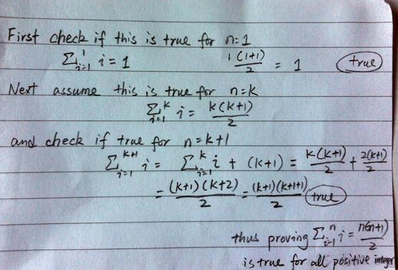 First check if this is true for n=1
∑_{i=1}^{1} i = 1    1(1+1)/2 = 1    true
Next assume this is true for n=k
∑_{i=1}^{k} i = k(k+1)/2
and check if true for n=k+1
∑_{i=1}^{k+1} i = ∑_{i=1}^{k} i + (k+1) = k(k+1)/2 + 2(k+1)/2
= (k+1)(k+2)/2 = (k+1)(k+1+1)/2 true
thus proving ∑_{i=1}^{n} i = n(n+1)/2
is true for all positive integer